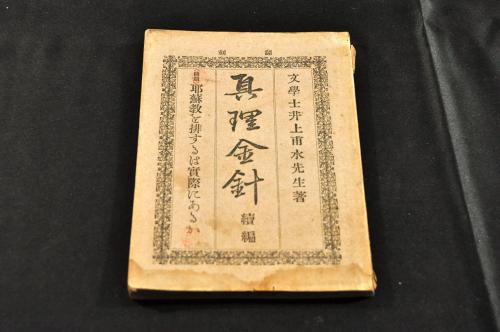 文學士井上甫水先生著
真理金針
續編
耶蘇教を排するは實際にあるか